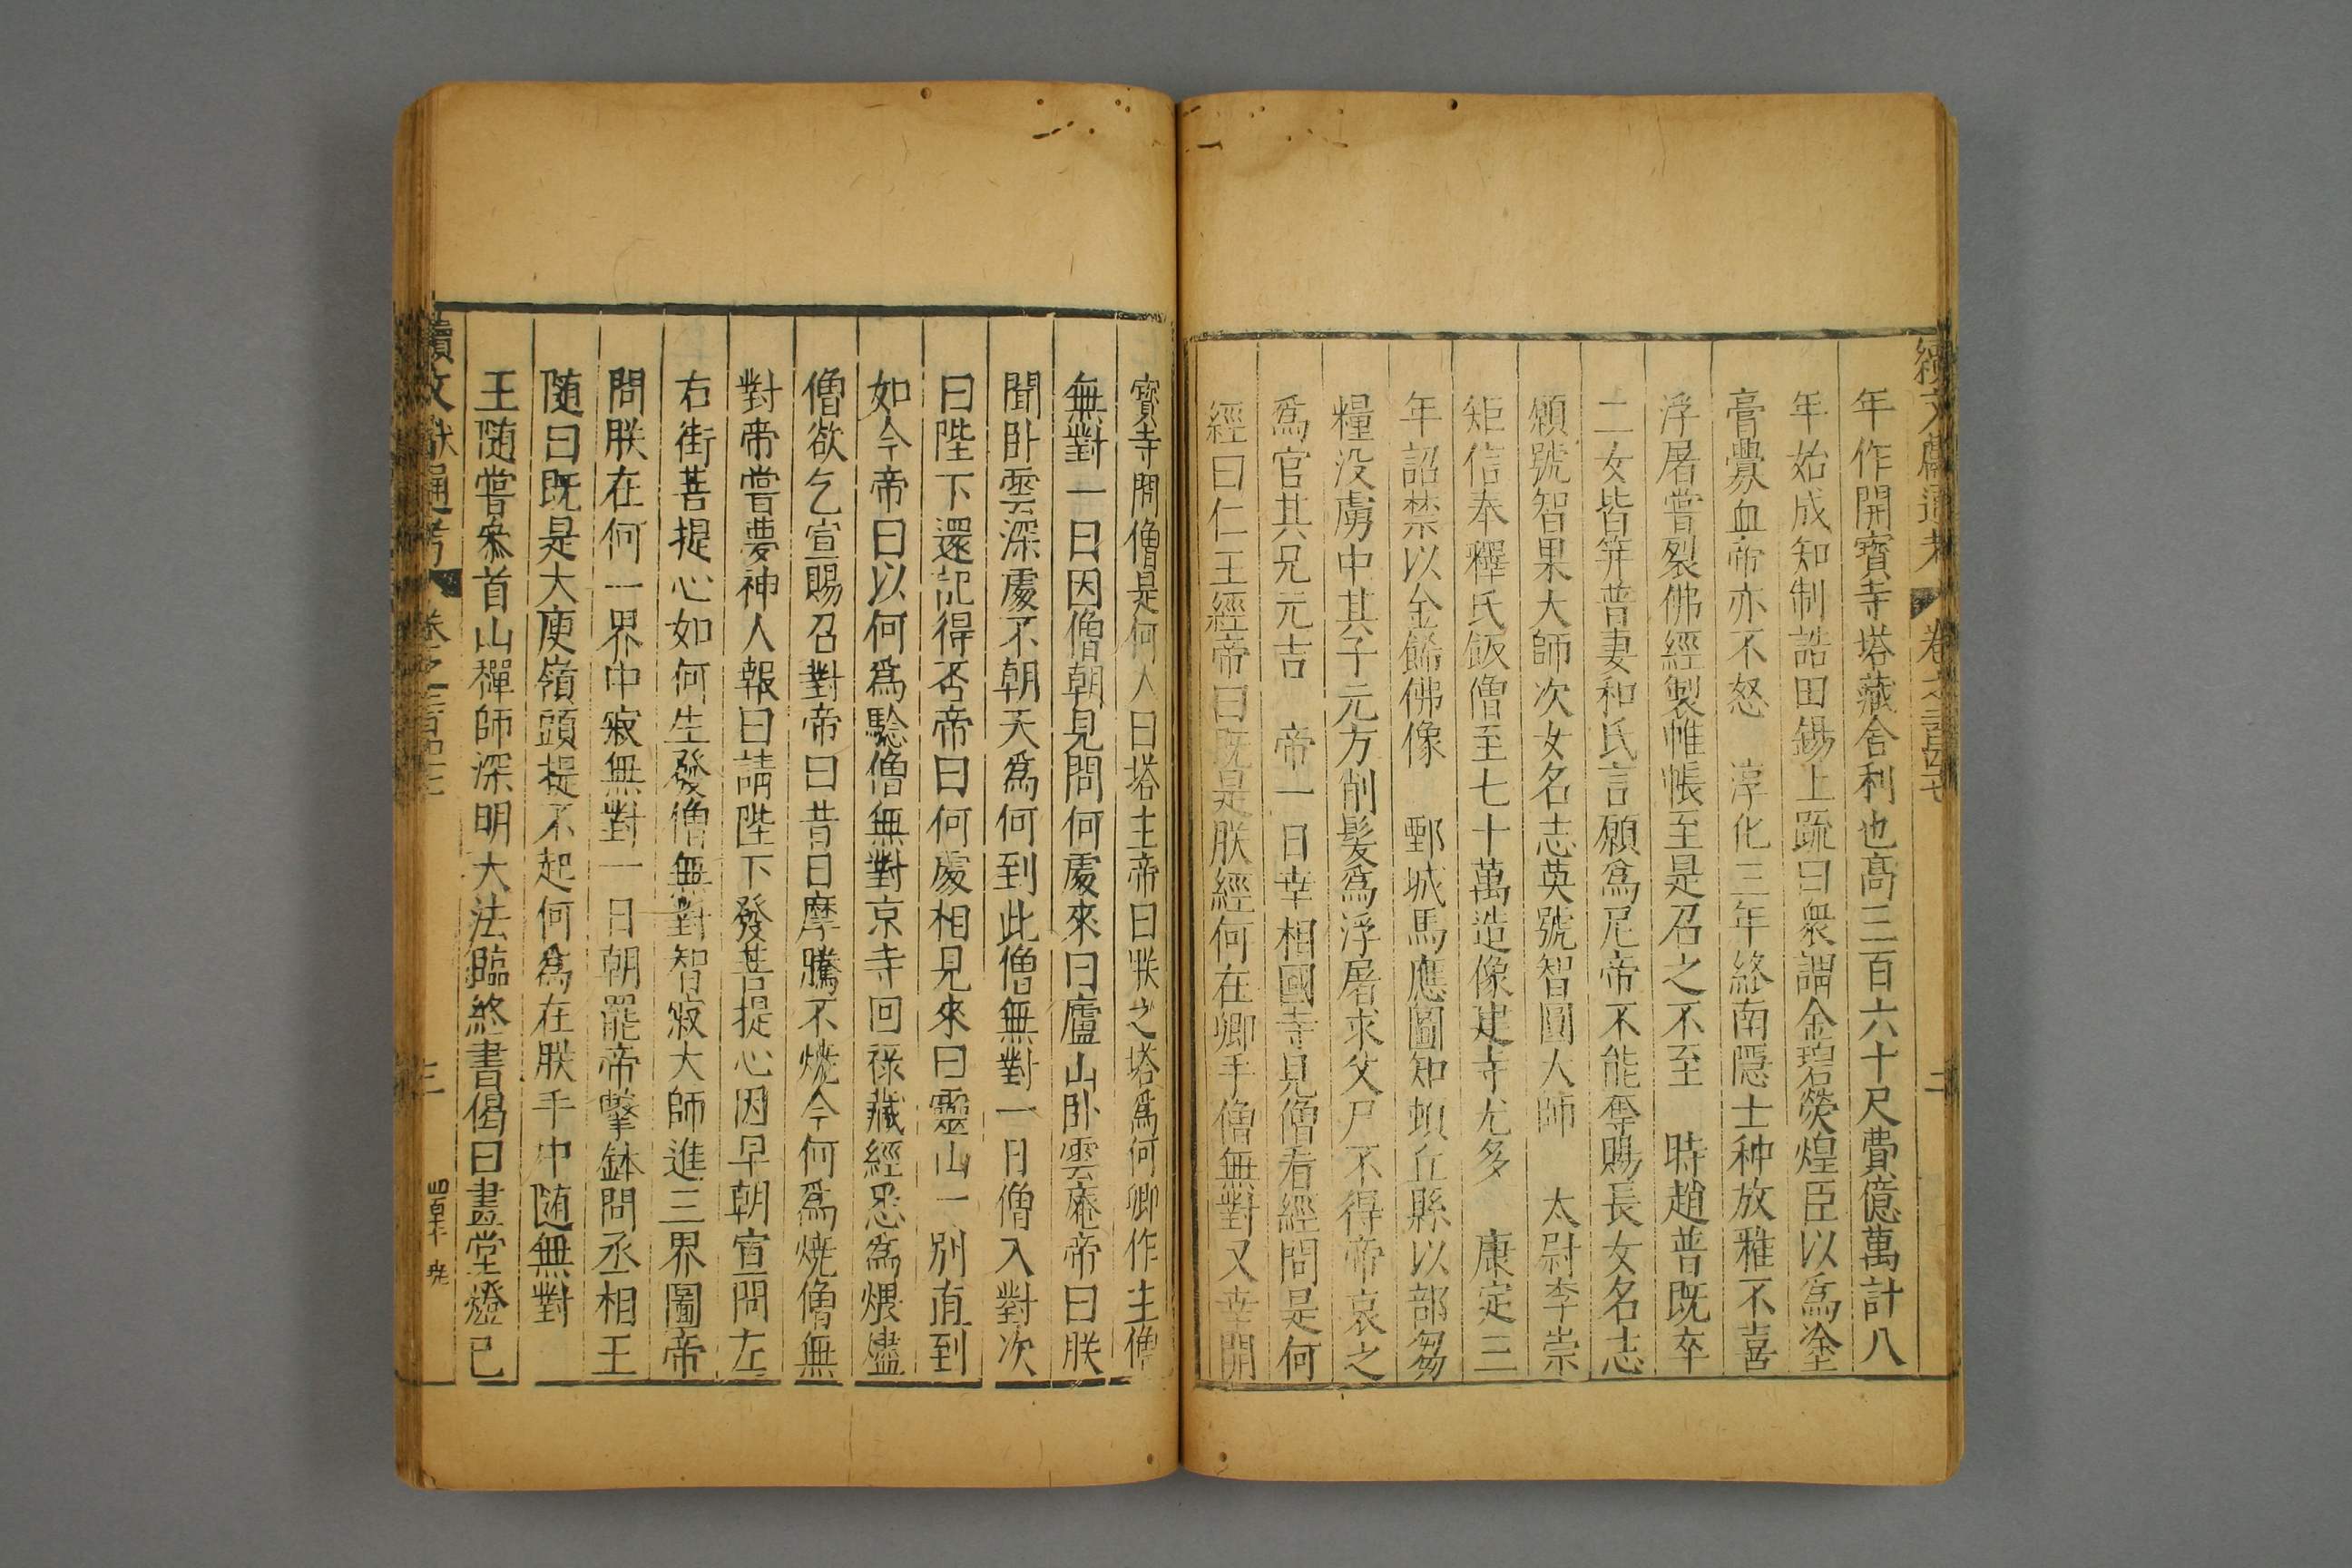 年作開寶寺塔藏舍利也高三百六十尺費億萬計八
年始成知制誥田錫上疏曰衆謂金碧熒煌臣以爲塗
膏釁血帝亦不怒　淳化三年終南隱士种放雅不喜
浮屠嘗裂佛經製帷帳至是召之不至　時趙普既卒
二女皆笄普妻和氏言願爲尼帝不能奪賜長女名志
願號智果大師次女名志英號智圓大師　太尉李崇
矩信奉釋氏飯僧至七十萬造像建寺尤多　康定三
年詔禁以金餙佛像　鄄城馬應圖知頓丘縣以部芻
糧没虜中其子元方削髮爲浮屠求父尸不得帝哀之
爲官其兄元吉　帝一日幸相國寺見僧看經問是何
經曰仁王經帝曰既是朕經何在卿手僧無對又幸開
寶寺問僧是何人曰塔主帝曰朕之塔爲何卿作主僧
無對一日因僧朝見問何處來曰廬山卧雲菴帝曰朕
聞卧雲深處不朝天爲何到此僧無對一日僧入對次
曰陛下還記得否帝曰何處相見來曰靈山一别直到
如今帝曰以何爲驗僧無對京寺回祿藏經悉爲煨燼
僧欲乞宣賜召對帝曰昔日摩騰不燒今何爲燒僧無
對帝嘗夢神人報曰請陛下發菩提心因早朝宣問左
右街菩提心如何生發僧無對智寂大師進三界圖帝
問朕在何一界中寂無對一日朝罷帝擎鉢問丞相王
随曰既是大庾嶺頭提不起何爲在朕手中随無對
王随嘗叅首山禪師深明大法臨終書偈曰畫堂燈已
續文獻通考
三